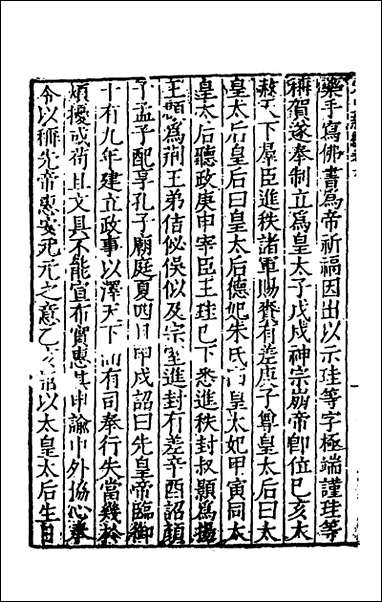 藥手寫佛書爲帝祈福因出以示珪等字極端謹珪等
稱賀遂奉制立爲皇太子戊戌神宗崩帝卽位已亥大
赦天下羣臣進秩諸軍賜賚有差庚子尊皇太后曰太
皇太后皇后曰皇太后德妃朱氏曰皇太妃甲寅同太
皇太后聽政庚申宰臣王珪已下悉進秩封叔顥爲揚
王頵爲荊王弟佶佖俁似及宗室進封有差辛酉詔顏
子孟子配享孔子廟庭夏四月甲戌詔曰先皇帝臨御
十有九年建立政事以澤天下而有司奉行失當幾於
煩擾或苟且文具不能宣布實惠其申諭中外協心奉
令以稱先帝惠安元元之意乙亥詔以太皇太后生日